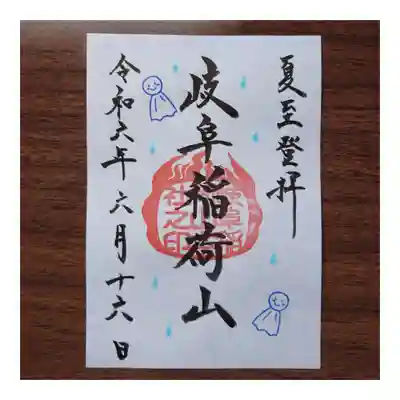 夏至登拝
岐阜稲荷山
令和六年六月十六日